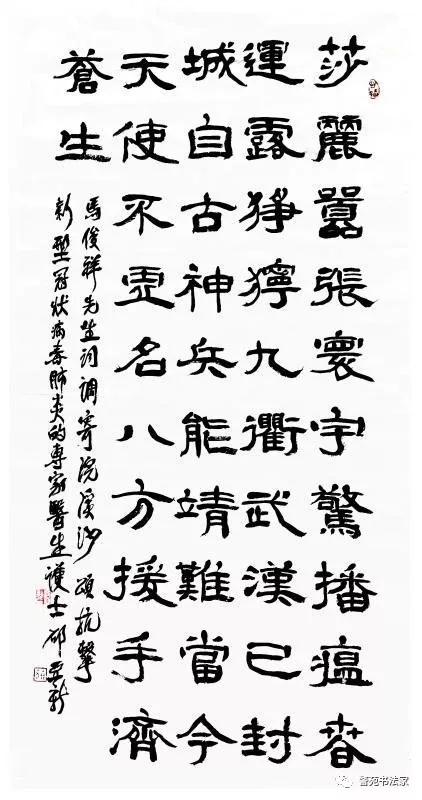 莎麗囂張寰宇驚播瘟春
運露猙獰九衢武漢已封
城自古神兵能靖難當今
天使不虛名八方援手濟
蒼生
馬俊祥先生詞調寄浣溪沙 頌抗擊
新型冠狀病毒肺炎的專家醫生護士
警苑书法家